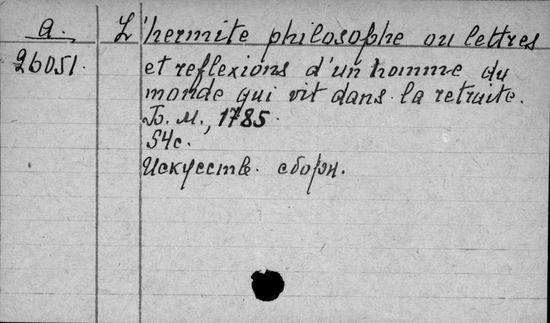 A.
26051.
L'hermite philosophe ou lettres
et reflexions d'un homme du
monde qui vit dans la retraite.
Б. м., 1785.
54 с.
Искусств. сборн.